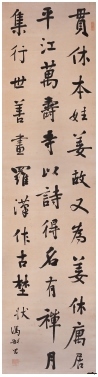 貫休本姓姜故又為姜休廬居
平江萬壽寺以詩得名有禪月
集行世善畫羅漢作古埜狀